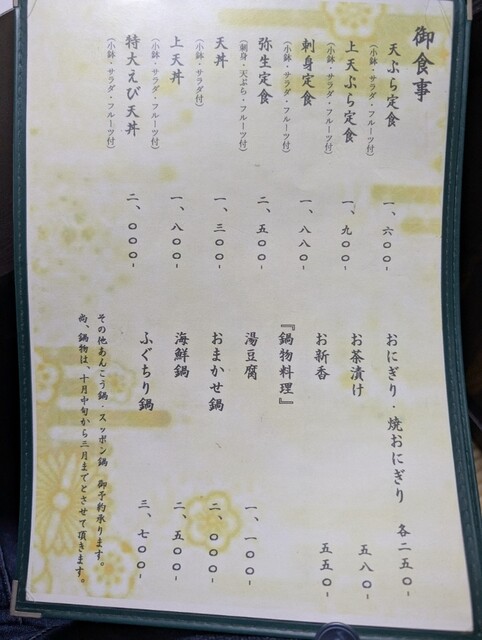 御食事
天ぷら定食 一、六〇〇-
(小鉢・サラダ・フルーツ付)
上天ぷら定食 一、九〇〇-
(小鉢・サラダ・フルーツ付)
刺身定食 一、八八〇-
(小鉢・サラダ・フルーツ付)
弥生定食 二、五〇〇-
(刺身・天ぷら・フルーツ付)
天丼 一、三〇〇-
(小鉢・サラダ付)
上天丼 一、八〇〇-
(小鉢・サラダ・フルーツ付)
特大えび天丼 二、〇〇〇-
(小鉢・サラダ・フルーツ付)
おにぎり・焼おにぎり 各二五〇-
お茶漬け 五八〇-
お新香 五五〇-
『鍋物料理』
湯豆腐 一、一〇〇-
おまかせ鍋 二、〇〇〇-
海鮮鍋 二、五〇〇-
ふぐちり鍋 三、七〇〇-
その他あんこう鍋・スッポン鍋 御予約承ります。
尚、鍋物は、十月中旬から三月までとさせて頂きます。